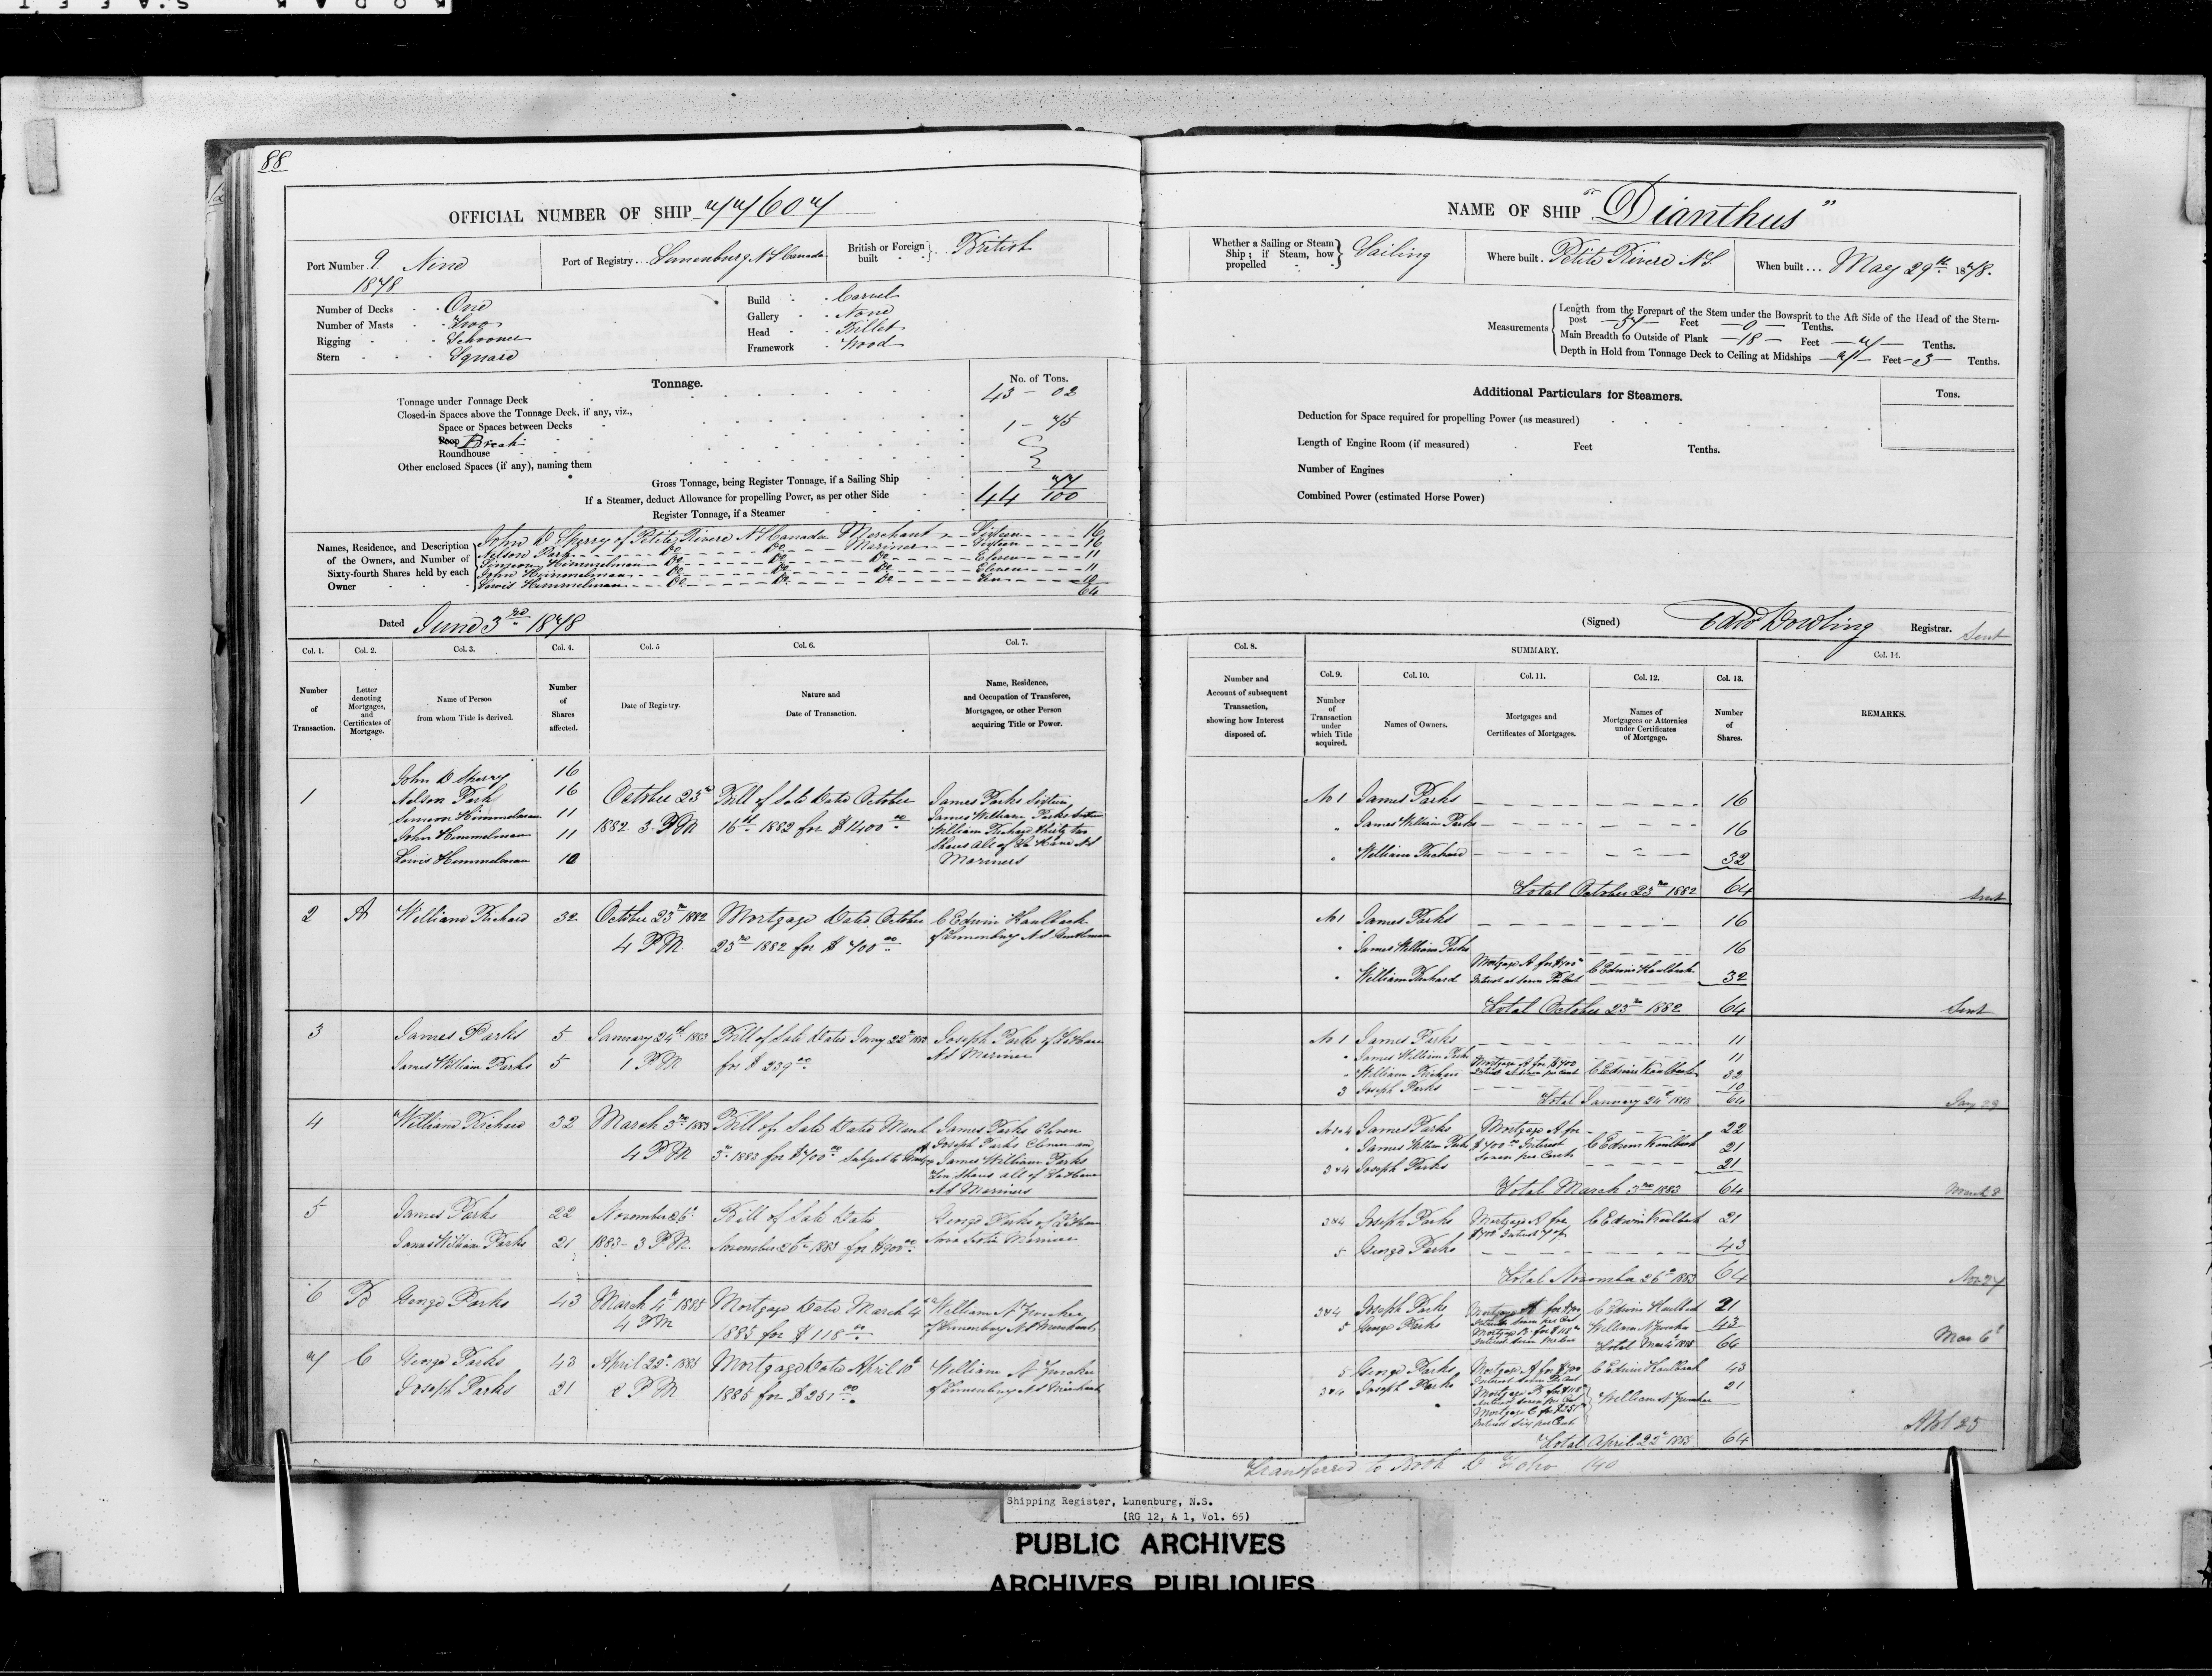 88
OFFICIAL NUMBER OF SHIP 77607
Port Number 9. Nine
1878
Port of Registry . . Lunenburg N S Canada
British or Foreign built British
Number of Decks One
Number of Masts Two
Rigging Schooner
Stern Square
Build Carvel
Gallery None
Head Billet
Framework Wood
Tonnage.
No. of Tons.
Tonnage under Tonnage Deck 43 - 02
Closed-in Spaces above the Tonnage Deck, if any, viz.,
Space or Spaces between Decks
Poop Break 1 - 75
Roundhouse
Other enclosed Spaces (if any), naming them
Gross Tonnage, being Register Tonnage, if a Sailing Ship
If a Steamer, deduct Allowance for propelling Power, as per other Side
Register Tonnage, if a Steamer
44 77/100
Names, Residence, and Description of the Owners, and Number of Sixty-fourth Shares held by each Owner
John D Sperry of Petite Riviere N S Canada Merchant Sixteen 16
Nelson Park Do Do Mariner Sixteen 16
Simpson Himmelman Do Do Do Eleven 11
John Himmelman Do Do Do Eleven 11
Lewis Himmelman Do Do Do Ten 10
64
Dated June 3rd 1878
Col. 1. Col. 2. Col. 3. Col. 4. Col. 5 Col. 6. Col. 7.
Number of Transaction.
Letter denoting Mortgages, and Certificates of Mortgage.
Name of Person from whom Title is derived.
Number of Shares affected.
Date of Registry.
Nature and Date of Transaction.
Name, Residence, and Occupation of Transferee, Mortgagee, or other Person acquiring Title or Power.
1
John D Sperry 16
Nelson Park 16
Simeon Himmelman 11
John Himmelman 11
Lewis Himmelman 10
October 23rd
1882 3 PM
Bill of Sale Dated October
16th 1882 for $1400.00
James Parks Sixteen
James William Parks Sixteen
William Richard thirty two
Shares all of La Have N S
Mariners
2 A William Richard 32
October 23rd 1882
4 PM
Mortgage Dated October
23rd 1882 for $700.00
C Edwin Kaulback
of Lunenburg N S Gentleman
3
James Parks 5
James William Parks 5
January 24th 1883
1 PM
for $239.00
Joseph Parks of LaHave
N S Mariner
4 William Richard 32
March 3rd 1883
4 PM
Bill of Sale Dated March
3rd 1883 for $700.00
James Parks Eleven
Joseph Parks Eleven and
James William Parks
Ten Shares all of LaHave
N S Mariners
5
James Parks 22
James William Parks 21
November 26th
1883 - 3 PM
Bill of Sale Dated
November 26th 1883 for $900.00
George Parks of LaHave
Nova Scotia Mariner
6 B George Parks 43
March 4th 1885
4 PM
Mortgage Dated March 4
1885 for $118.00
William N Zwicker
of Lunenburg N S Merchant
7 C
George Parks 43
Joseph Parks 21
2 PM
Mortgage Dated April 10th
1885 for $251.00
William N Zwicker
of Lunenburg N S Merchant
NAME OF SHIP "Dianthus"
Whether a Sailing or Steam Ship; if Steam, how propelled Sailing
Where built Petite Riviere N S
When built . . . May 29th 1878.
Measurements
Length from the Forepart of the Stem under the Bowsprit to the Aft Side of the Head of the Stern-
post 57 Feet 0 Tenths.
Main Breadth to Outside of Plank 18 Feet 7 Tenths.
Depth in Hold from Tonnage Deck to Ceiling at Midships 7 Feet 3 Tenths.
Additional Particulars for Steamers.
Tons.
Deduction for Space required for propelling Power (as measured)
Length of Engine Room (if measured) Feet Tenths.
Number of Engines
Combined Power (estimated Horse Power)
(Signed) Edw Dowling Registrar. Sent
Col. 8. SUMMARY. Col. 14.
Number and Account of subsequent Transaction, showing how Interest disposed of.
Col. 9. Col. 10. Col. 11. Col. 12. Col. 13.
Number of Transaction under which Title acquired.
Names of Owners.
Mortgages and Certificates of Mortgages.
Names of Mortgagees or Attornies under Certificates of Mortgage.
Number of Shares.
REMARKS.
No 1 James Parks 16
" James William Parks 16
" William Richard 32
Total October 23rd 1882 64 Sent
No 1 James Parks 16
" James William Parks 16
" William Richard Mortgage A for $700 Interest at seven Per Cent C Edwin Kaulback 32
Total October 23rd 1882 64 Sent
No 1 James Parks 11
" James William Parks 11
" William Richard Mortgage A for $700 Interest at seven per Cent C Edwin Kaulback 32
3 Joseph Parks 10
Total January 24th 1883 64
No 1 & 4 James Parks 22
" James William Parks 21
3 & 4 Joseph Parks 21
Mortgage A for $700.00 Interest Seven per Cent
C Edwin Kaulback
Total March 3rd 1883 64 March 8
3 & 4 Joseph Parks Mortgage A for C Edwin Kaulback 21
5 George Parks 43
Total November 26th 1883 64 Nov 27
3 & 4 Joseph Parks Mortgage A for $700 C Edwin Kaulback 21
5 George Parks William N Zwicker 43
Total March 4th 1885 64 Mar 6th
5 George Parks Mortgage A for $700 C Edwin Kaulback 43
3 & 4 Joseph Parks 21
Mortgage B for $118
Interest seven per Cent
Mortgage C for $251
Interest Six per Cent
William N Zwicker
Total April 22d 1885 64
Transferred to Book D Folio 140
Shipping Register, Lunenburg, N.S.
(RG 12, A 1, Vol. 65)
PUBLIC ARCHIVES
ARCHIVES PUBLIQUES